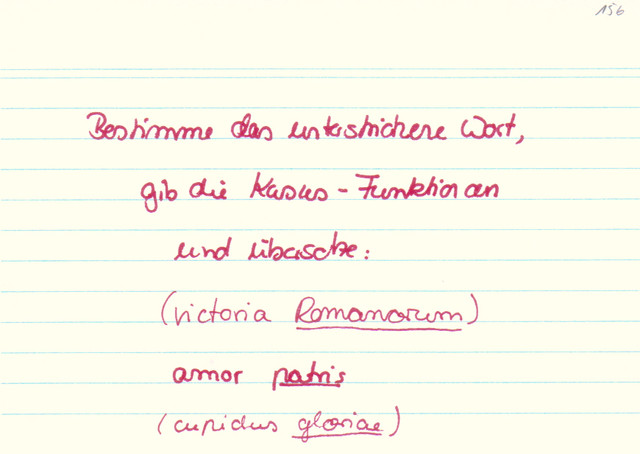 156
Bestimme das unterstrichene Wort,
gib die Kasus-Funktion an
und übersetze:
(victoria Romanorum)
amor patris
(cupidus gloriae)